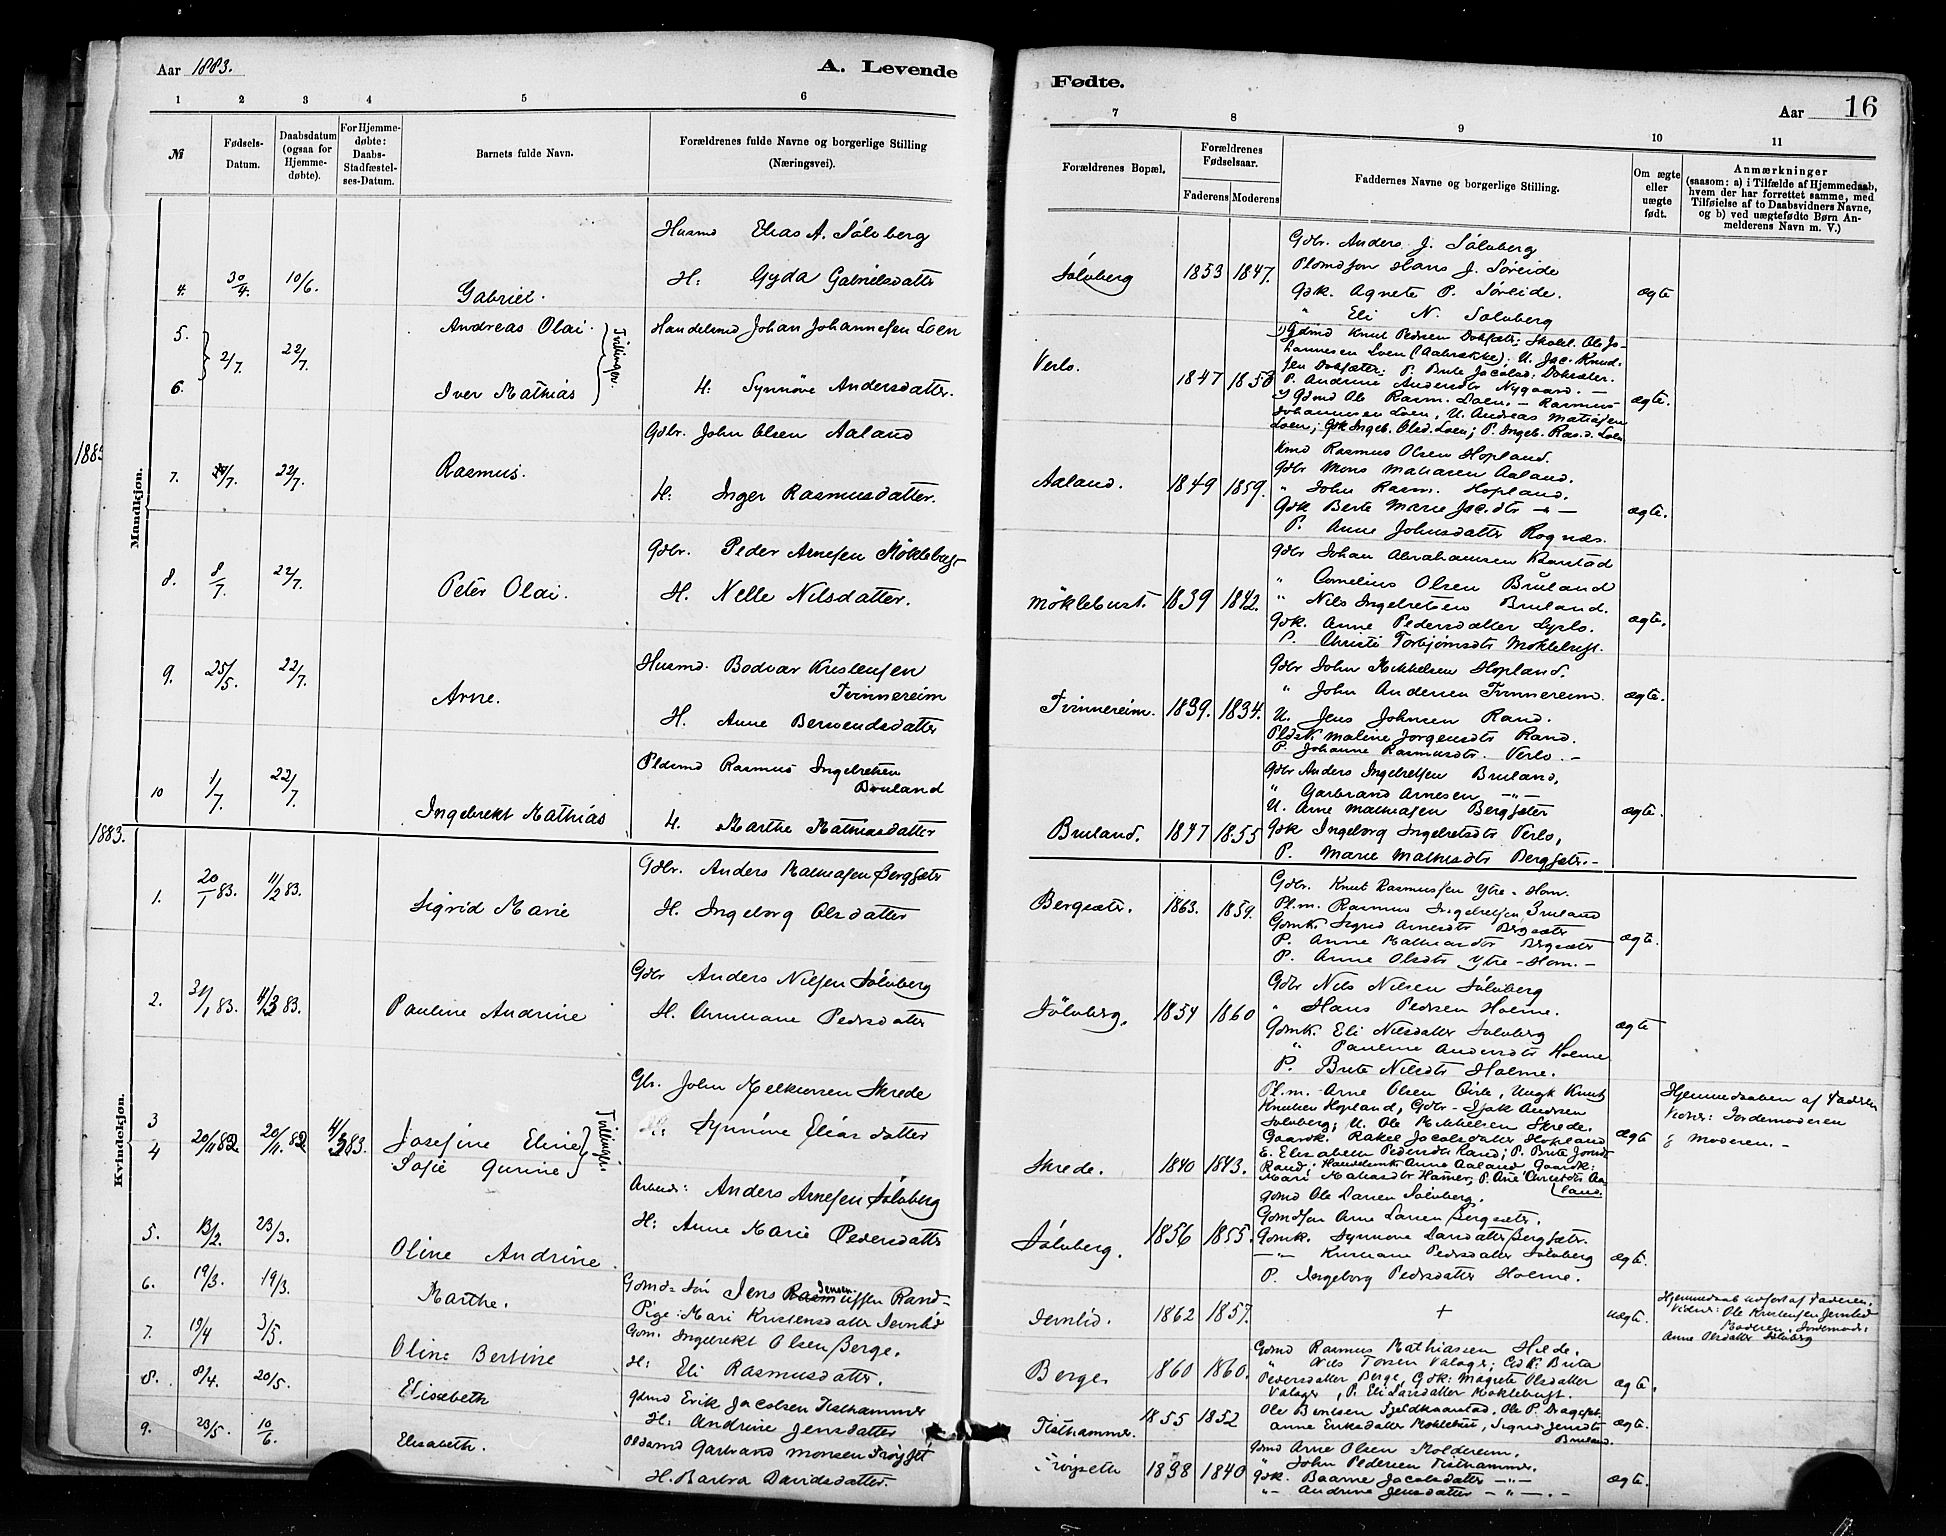 Aar 1883.
A. Levende
Fødte.
Aar
16
1 2 3 4 5 6
7 8 9 10 11
№
Fødsels-
Datum.
Daabsdatum
(ogsaa for
Hjemme-
døbte).
For Hjemme-
døbte:
Daabs-
Stadfæstel-
ses-Datum.
Barnets fulde Navn.
Forældrenes fulde Navne og borgerlige Stilling
(Næringsvei).
Forældrenes Bopæl.
Forældrenes
Fødselsaar.
Faderens
Moderens
Faddernes Navne og borgerlige Stilling.
Om ægte
eller
uægte
født.
Anmærkninger
(saasom: a) i Tilfælde af Hjemmedaab,
hvem der har forrettet samme, med
Tilføielse af to Daabsvidners Navne,
og b) ved uægtefødte Børn An-
melderens Navn m. V.)
1883
Mandkjøn.
4. 30/4. 10/6. Gabriel.
Husmd Elias A. Sølvberg
H: Gyda Gabrielsdatter
Sølvberg 1853 1847.
Gdbr. Anders J. Sølvberg
Hans J. Søreide
Gdk. Agnete P. Søreide.
" Eli N. Sølvberg
ægte
5. Andreas Olai.
6. Iver Mathias
2/7. 22/7.
Tvillinger.
Handelsmd Johan Johannesen Loen
H. Synnøve Andersdatter.
Verlo. 1847
1) Gdmd Knut Pedersen
P. Andrine Andersdtr Nygaard. –
Gdmd Ole Rasm. Loen, – Rasmus
Johannesen Loen, U. Andreas Mathiasen
Loen; Gdk Ingeb. Olsd. Loen; P. Ingeb. Ras.d. Loen
ægte.
7. 22/7. Rasmus.
Gdbr. John Olsen Aaland
H. Inger Rasmusdatter.
Aaland. 1849 1859.
Rasmus Olsen Hopland.
Gdbr Mons Aaland.
" John Rasm. Hopland.
Gdk Berte Marie Jac.dtr – " –
P. Anne Johnsdatter Rognæs.
ægte.
8. 8/7. 22/7. Peter Olai.
Gdbr. Peder Arnesen Møklebust
H. Nelle Nilsdatter.
Møklebust. 1839 1842.
Gdbr Johan Abrahamsen
" Cornelius Olsen Bruland
" Nils Ingebretsen Bruland.
Gdk. Anne Pedersdatter
P. Christi Torbjørnsdtr Møklebust.
ægte.
9. 25/5. 22/7. Arne.
Husmd. Bodvar Kristensen
Tvinnereim
H. Anne Berendsdatter
Tvinnereim. 1839. 1834.
Gdbr John Mikkelsen Hopland.
" John Andersen Tvinnereim.
U. Jens Johnsen Rand.
Maline Jørgensdtr Rand.
P. Johanne Rasmusdtr. Verlo. –
ægte.
10 1/7. 22/7. Ingebrekt Mathias
Rasmus Ingebretsen
Bruland
H. Marthe Mathiasdatter
Bruland. 1847 1855
Gdbr Anders Ingebretsen Bruland,
" Garbrand Arnesen – " –
U. Arne Mathiasen Bergsæter
Gdk Ingeborg Ingebretsdtr Verlo,
P. Marie Mathisdtr Bergsæter. –
ægte.
1883.
Kvindekjøn.
1. 20/1 83. 11/2 83. Sigrid Marie
Gdbr. Anders Mathiasen Bergsæter
H. Ingeborg Olsdatter
Bergsæter. 1863. 1859.
Gdbr. Knut Rasmussen Ytre-Hom.
Pl.m. Rasmus Ingebretsen Bruland
Gdmk. Sigrid Arnesdtr Bergsæter
P. Anne Mathiasdtr Bergsæter
P. Anne Olsdtr Ytre-Hom. –
ægte.
2. 31/1 83. 4/3 83. Pauline Andrine
Gdbr Anders Nilsen Sølvberg
H. Christiane Pedersdatter
Sølvberg. 1854 1860
Gdbr Nils Nilsen Sølvberg
" Hans Pedersen Holme.
Gdmk. Eli Nilsdatter Sølvberg
" Pauline Andersdtr Holme
P. Brite Nilsdtr Holme.
ægte
3 Josefine Eline
4 Sofie Gurine
20/11 82 20/11 82 4/3 83.
Tvillinger.
Gbr. John Melkiorsen Skrede
H: Synnøve Eliasdatter
Skrede. 1840 1843.
Pl.m. Arne Olsen
Knutsen Hopland, Gdbr – Isak Andersen
Sølvberg; U. Ole Mikkelsen Skrede.
Gaardk. Rakel Jacobsdatter Hopland
E. Elisabeth Pedersdtr Rand; P. Brite
Rand; Anne Aaland Gaardk:
ægte
Hjemmedaaben af Faderen
Vidner: Jordemoderen
g Moderen. –
5. 13/2. 23/3. Oline Andrine.
Arbeidr: Anders Arnesen Sølvberg
H: Anne Marie Pedersdatter
Sølvberg. 1856 1855.
Gdmd Ole Larsen Sølvberg.
Gdmdsøn Arne Larsen Bergsæter.
Gdmk. Synnøve Larsdatter Bergsæter.
– " – Kristiane Pedersdatter Sølvberg
P. Ingeborg Pedersdatter Holme.
ægte.
6. 19/3. 19/3. Marthe.
Gdmd= Søn Jens Jensen Rand –
Pige: Mari Kristensdatter Jernlid
Jernlid. 1862 1857.
+
uægte.
Hjemmedaab udført af Faderen.
Vidner: Ole Kristensen Jernlid
Anne Olsdatter Sølvberg
7. 19/4 3/5. Oline Bertine
Gdm. Ingebrekt Olsen Berge.
H: Eli Rasmusdatter.
Berge 1860 1860.
Gdmd Rasmus Mathiassen Hilde.
" Nils Torsen Valager; Gdk. Brita
Pedersdatter Berge, Gdk: Magrete Olsdatter
Valager, P. Eli Larsdatter Møklebust.
ægte.
8. 8/4. 20/5. Elisabeth
Gdmd Erik Jacobsen Tisthammer
H: Andrine Jensdatter
Tisthammer. 1855 1852
Ole Bentsen Ole P.
Anne Eriksdatter Møklebust, Sigrid Jensdtr
Bruland.
ægte.
9. 23/5. 10/6. Elisabeth.
Garbrand Monsen Frøyset
H. Barbra Davidsdatter.
1838 1840
Gdmd Arne Olsen Moldereim.
" John Pedersen Tisthammer.
Gdk. Baarne Jacobsdatter – " –
– " – Andrine Jensdatter – " –
ægte.